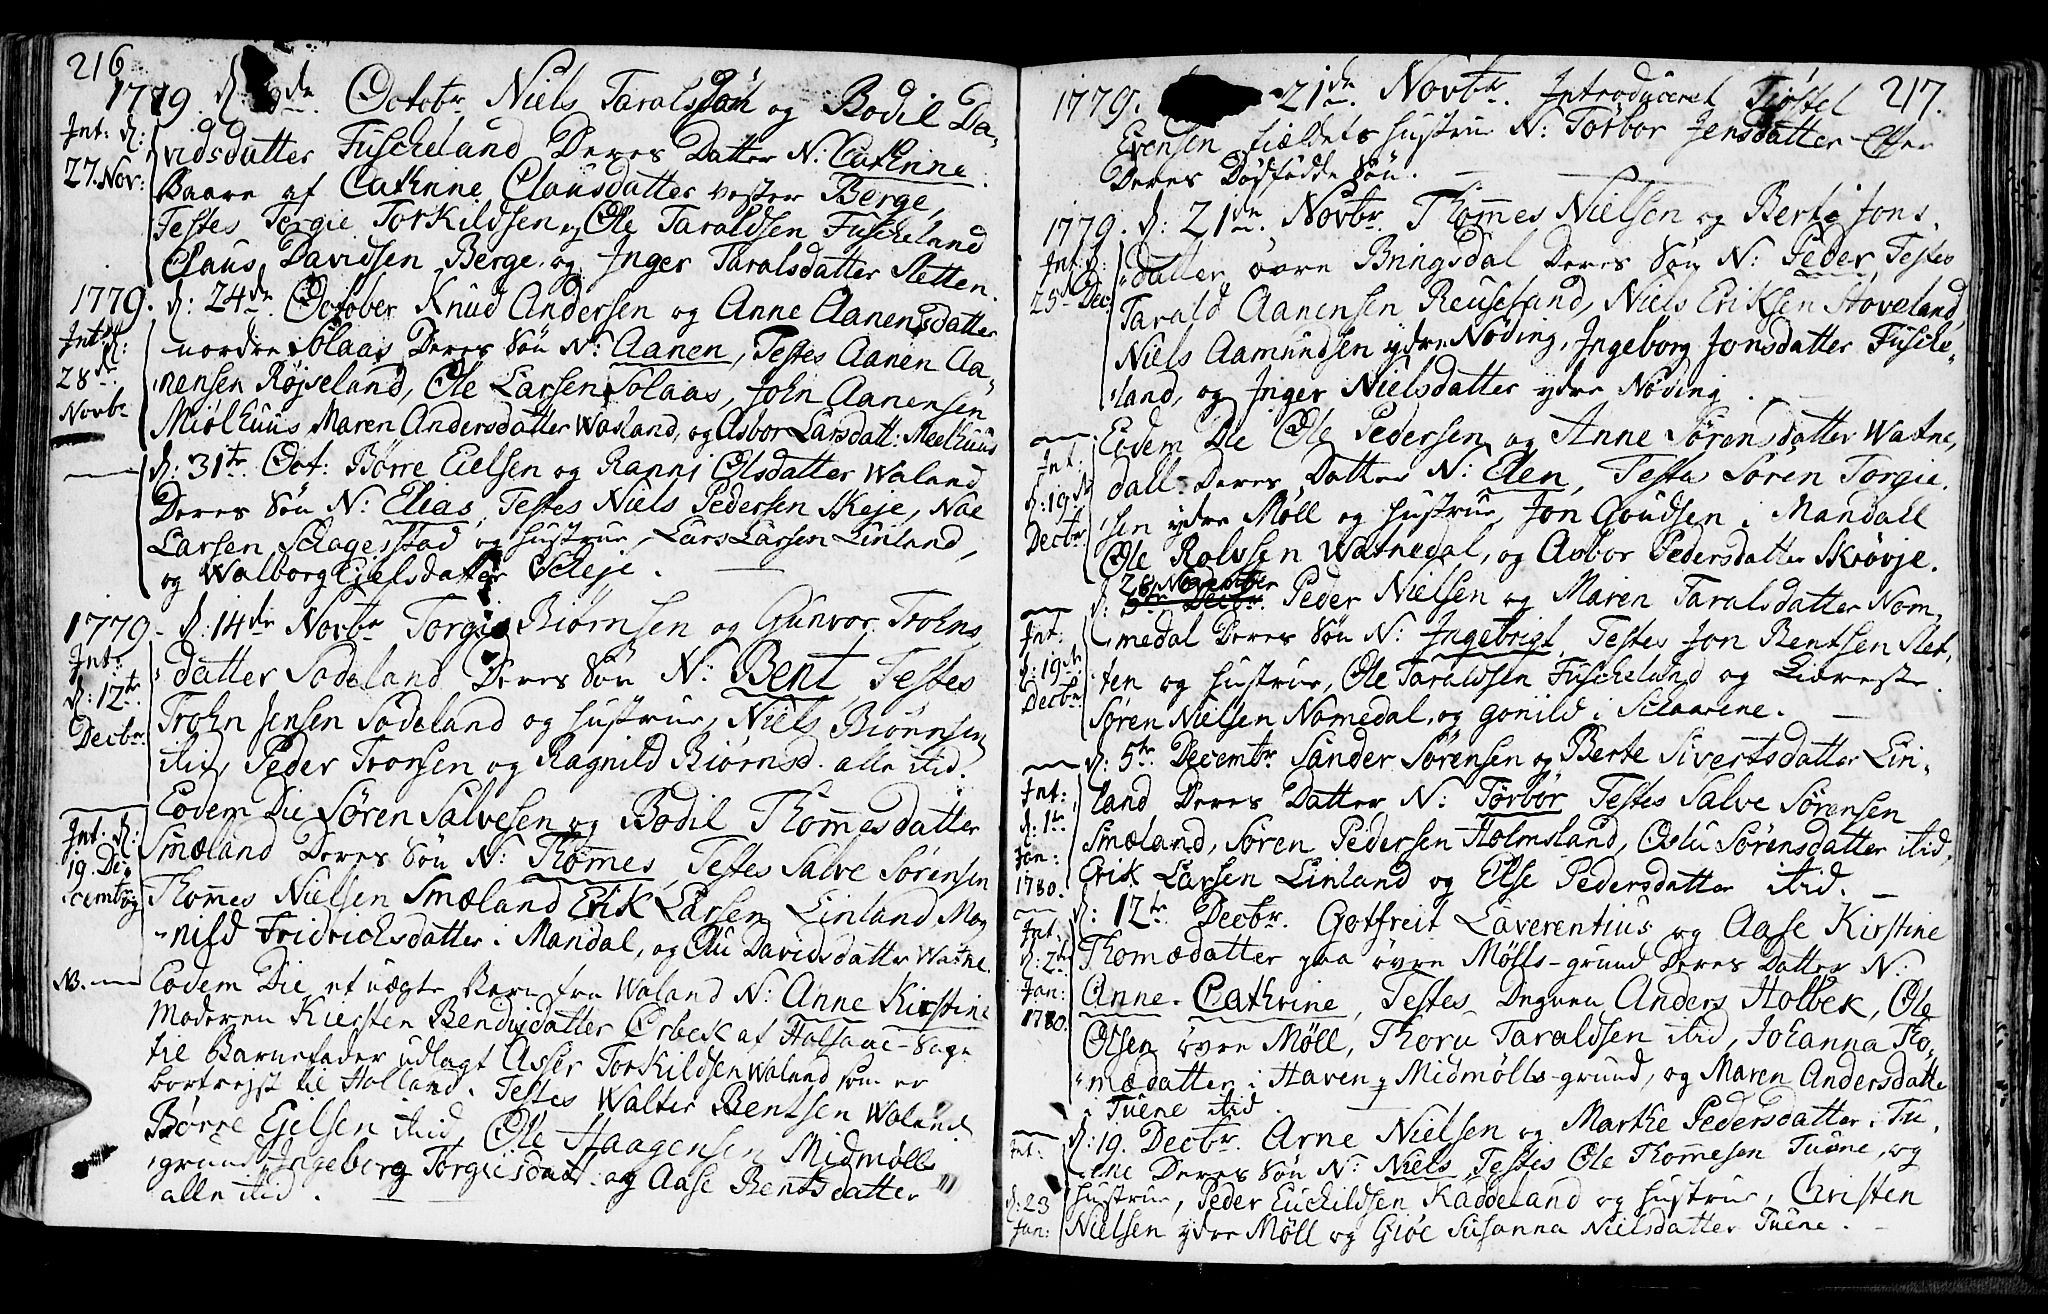 216
1779 d: de Octobr Niels Taralssøn og Bodil Da-
Int: d: vidsdatter Fuscheland Deres Datter N: Cathrine.
27. Nov: Baare af Cathrine Clausdatter vester Berge,
Testes Torgie Torkildsen og Ole Taraldsen Fuscheland
Claus Davidsen Berge og Inger Taralsdatter Sletten.
1779. d: 24de October Knud Andersen og Anne Aanensdatter
Int: d: nordre Solaas Deres Søn N: Aanen, Testes Aanen Aa-
28de nensen Røjseland, Ole Larsen Solaas, John Aanensen
Novbr Miølhuus Maren Andersdatter Wasland, og Asbor Larsdatt: Meelhuus
d: 31te Oct: Børre Eielsen og Ranni Olsdatter Waland
Deres Søn N: Elias, Testes Niels Pedersen Skeje, Nae
Larsen Schagestad og Hustrue, Lars Larsen Linland,
og Walborg Ejelsdatter Scheje.
1779. d: 14de Novbr Torgie Biørnsen og Gunvor Trohns
Int: datter Sodeland Deres Søn N: Bent, Testes
d: 12te Trohn Jensen Sodeland og Hustrue, Niels Biørnsen
Decbr. ibid, Peder Tronsen og Ragnild Biørnsd. alle ibid.
Eodem Die Søren Salvesen og Bodil Thomesdatter
Int. d: Smæland Deres Søn N: Thomes, Testes Salve Sørensen
19. De- Thomes Nielsen Smæland Erik Larsen Linland, Mag-
cembr nild Fridrichsdatter i Mandal, og Davidsdatter Watne.
NB. Eodem Die et uægte Barn fra Waland N: Anne Kirstine
Moderen Kiersten Bendixdatter Orbek af Halsaae-Sogn
til Barnefader udlagt Asser Torkildsen Waland som er
bortrejst til Holland. Testes Walter Bentsen Waland
Børre Ejelsen ibid, Ole Haagensen Midmølls
grund, Ingeborg Torgiesdat: og Aase Bentsdatter
alle ibid.
217.
1779. 21de Novbr. Introduceret Tiøstel
Evensen Fieldets Hustrue N: Torbor Jensdatter Efter
Deres Dødfødde Søn.
1779. d: 21de Novbr Thommes Nielsen og Berte Jons
Int: d: datter øvre Bringsdal Deres Søn N: Peder, Testes
25 Dec: Tarald Aanensen Reuseland, Niels Eriksen Stoveland,
Niels Aamundsen ydre Nøding, Ingeborg Jonsdatter Fusche-
land, og Inger Nielsdatter ydre Nøding.
Eodem Die Ole Pedersen og Anne Sørensdatter Watne-
Int: dall Deres Datter N: Elen, Testes Søren Torgie-
d: 19de sen ydre Møll og Hustrue, Jon Goudsen i Mandall
Decbr Ole Rolvsen Watnedal, og Asbor Pedersdatter Skrøvje.
28 November
d: Peder Nielsen og Maren Taralsdatter Nom-
Int: medal Deres Søn N: Ingebrigt, Testes Jon Bentsen Slet-
d: 19de ten og Hustrue, Ole Taraldsen Fuscheland og
Decbr Søren Nielsen Nomedal, og Gonild i Schaarene.
d: 5te Decembr Sander Sørensen og Berte Sivertsdatter Lin-
Int: land Deres Datter N: Torbor Testes Salve Sørensen
d: 1te Smæland, Søren Pedersen Holmsland, Sørensdatter ibid,
Jan: 1780. Erik Larsen Linland og Else Pedersdatter ibid.
d: 12te Decbr. Gotfreit Laverentius og Aase Kirstine
Int: Thomædatter paa øvre Mølls-grund Deres Datter N:
d: 2de Jan: Anne Cathrine, Testes Degnen Anders Holbek, Ole
1780. Olsen øvre Møll, Thoru Taraldsen ibid, Johanna Tho-
mædatter i Haven paa Midmølls-grund, og Maren Andersdatter
i Tuene ibid.
Int: d: 19. Decbr. Arne Nielsen og Marthe Pedersdatter i Tu-
ene Deres Søn N: Niels, Testes Ole Thomesen Tuene, og
d: 23 Hustrue, Peder Euchildsen Kaddeland og Hustrue, Christen
Jan: Nielsen ydre Møll og Giøe Susanna Nielsdatter Tuene.